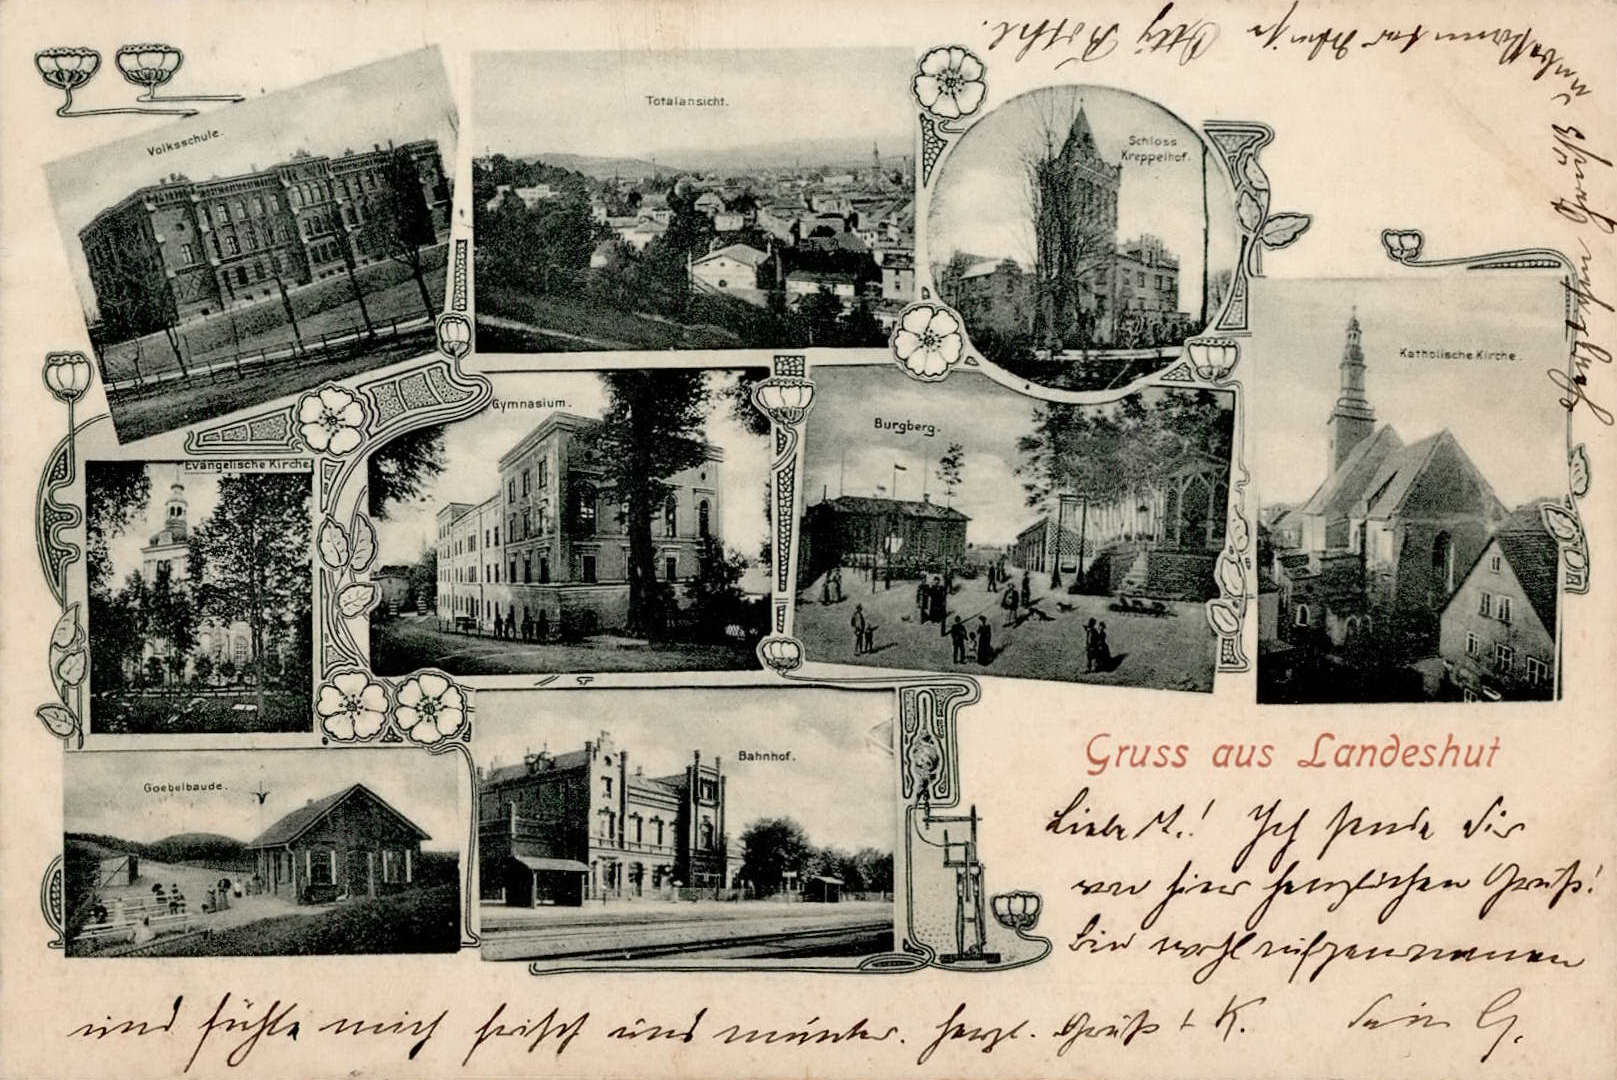 Volksschule.
Totalansicht.
Schloss
Kreppelhof.
Katholische Kirche.
Gymnasium.
Burgberg.
Evangelische Kirche.
Goebelbaude.
Bahnhof.
Gruss aus Landeshut
Liebe M.! Ich sende Dir
von hier herzlichen Gruß!
Bin wohl aufgenommen
und fühle mich frisch und munter. herzl. Gruß + K. Dein G.